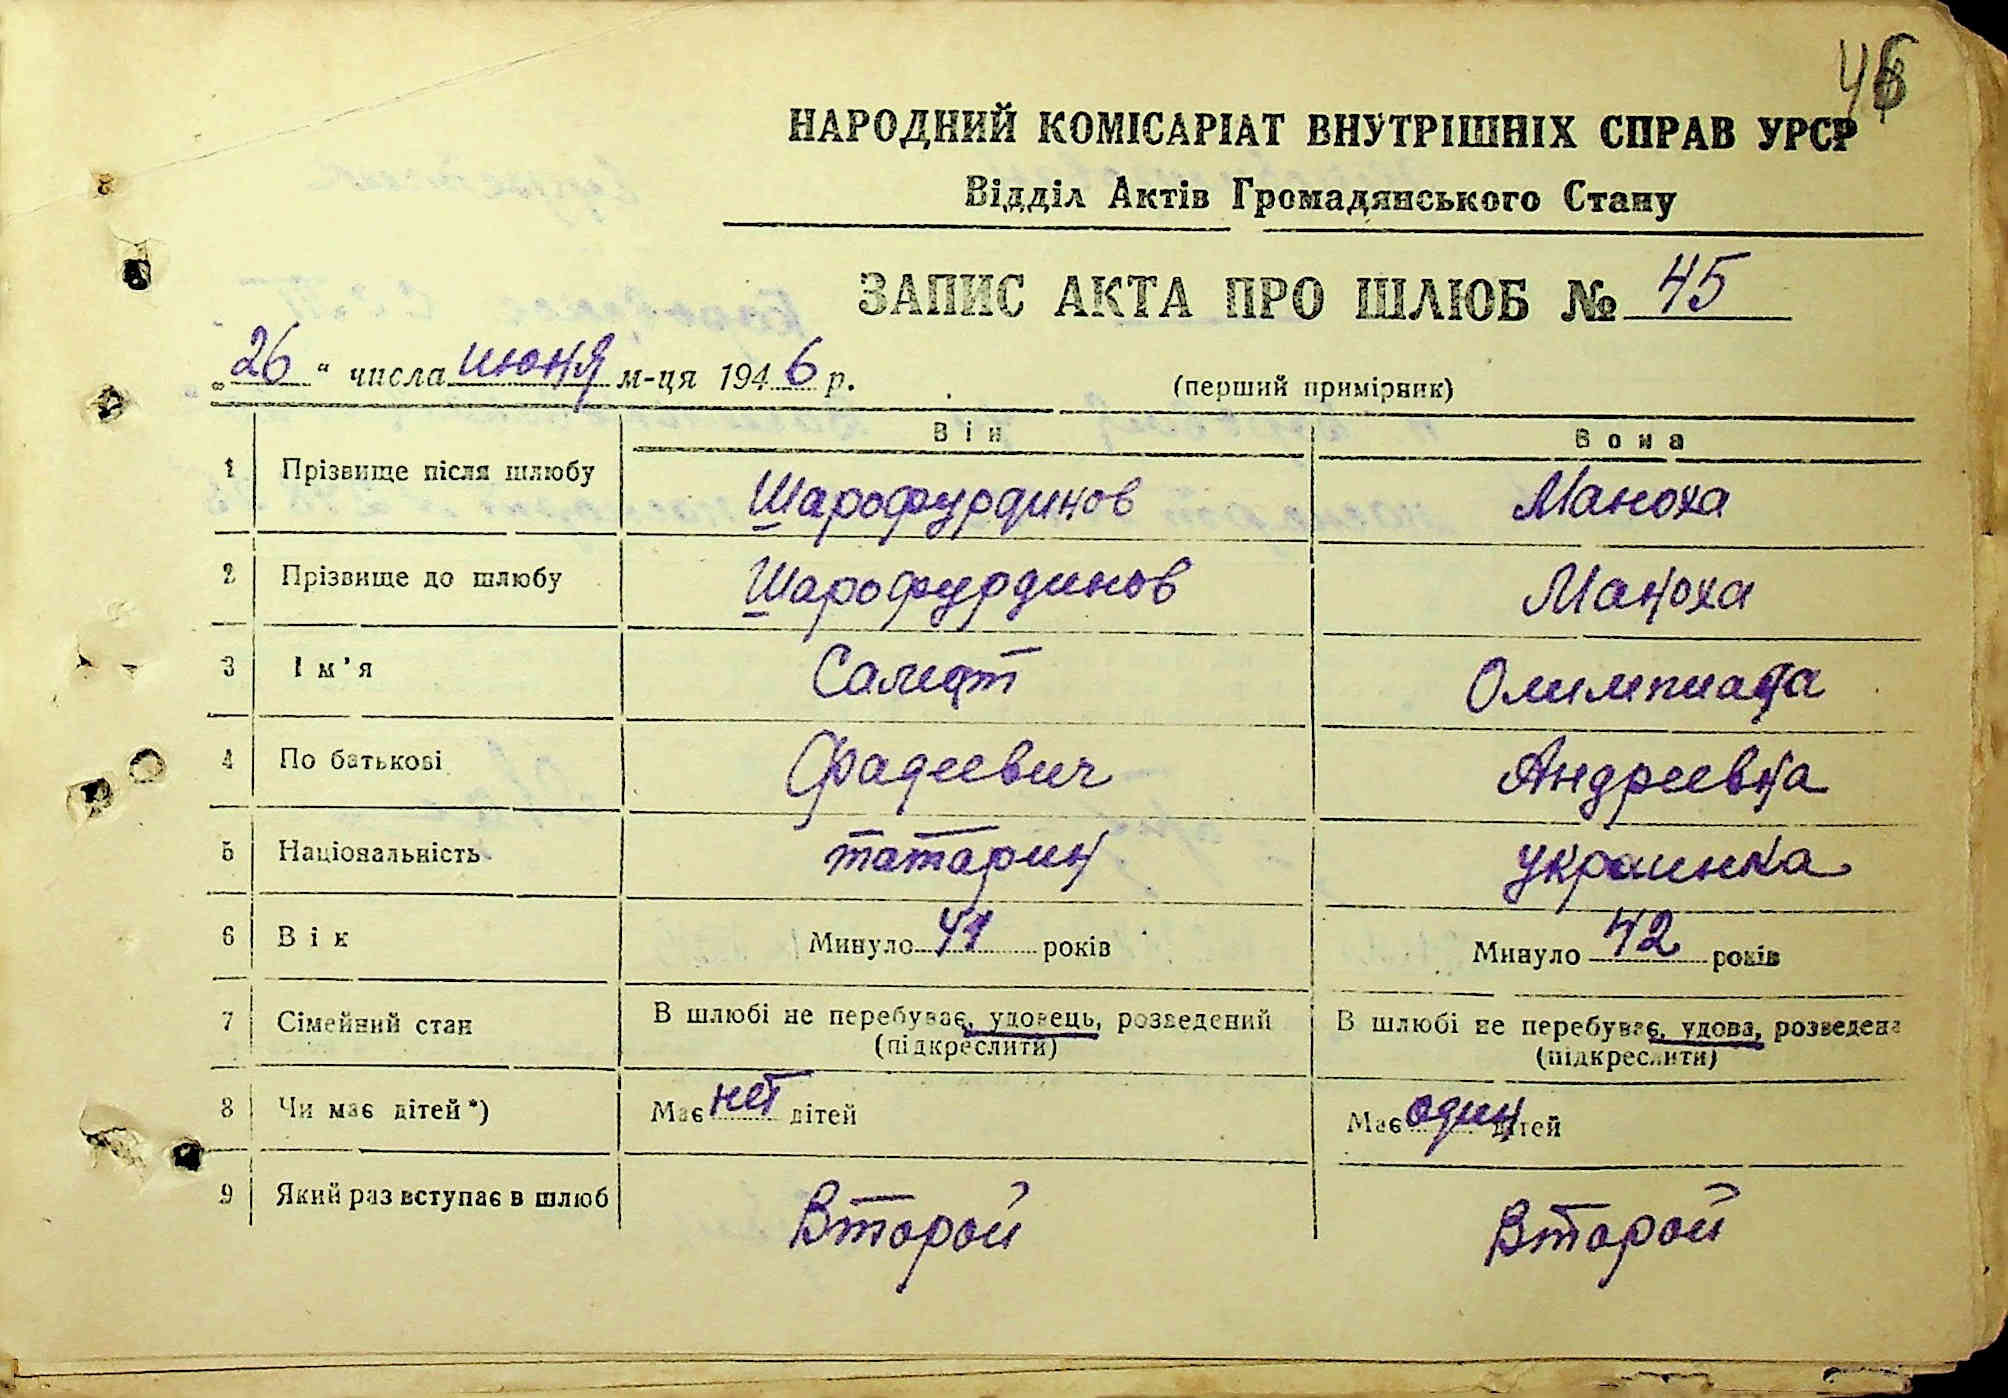 46
НАРОДНИЙ КОМІСАРІАТ ВНУТРІШНІХ СПРАВ УРСР
Відділ Актів Громадянського Стану
ЗАПИС АКТА ПРО ШЛЮБ № 45
„26“ числа июня м-ця 1946 р. (перший примірник)
Він Вона
1 Прізвище після шлюбу Шарофурдинов Маноха
2 Прізвище до шлюбу Шарофурдинов Маноха
3 Ім’я Олимпиада
4 По батькові Фадеевич Андреевна
5 Національність татарин украинка
6 Вік Минуло 41 років Минуло 42 років
7 Сімейний стан В шлюбі не перебуває, удовець, розведений (підкреслити) В шлюбі не перебуває, удова, розведена (підкреслити)
8 Чи має дітей*) Має нет дітей Має один дітей
9 Який раз вступає в шлюб Второй Второй